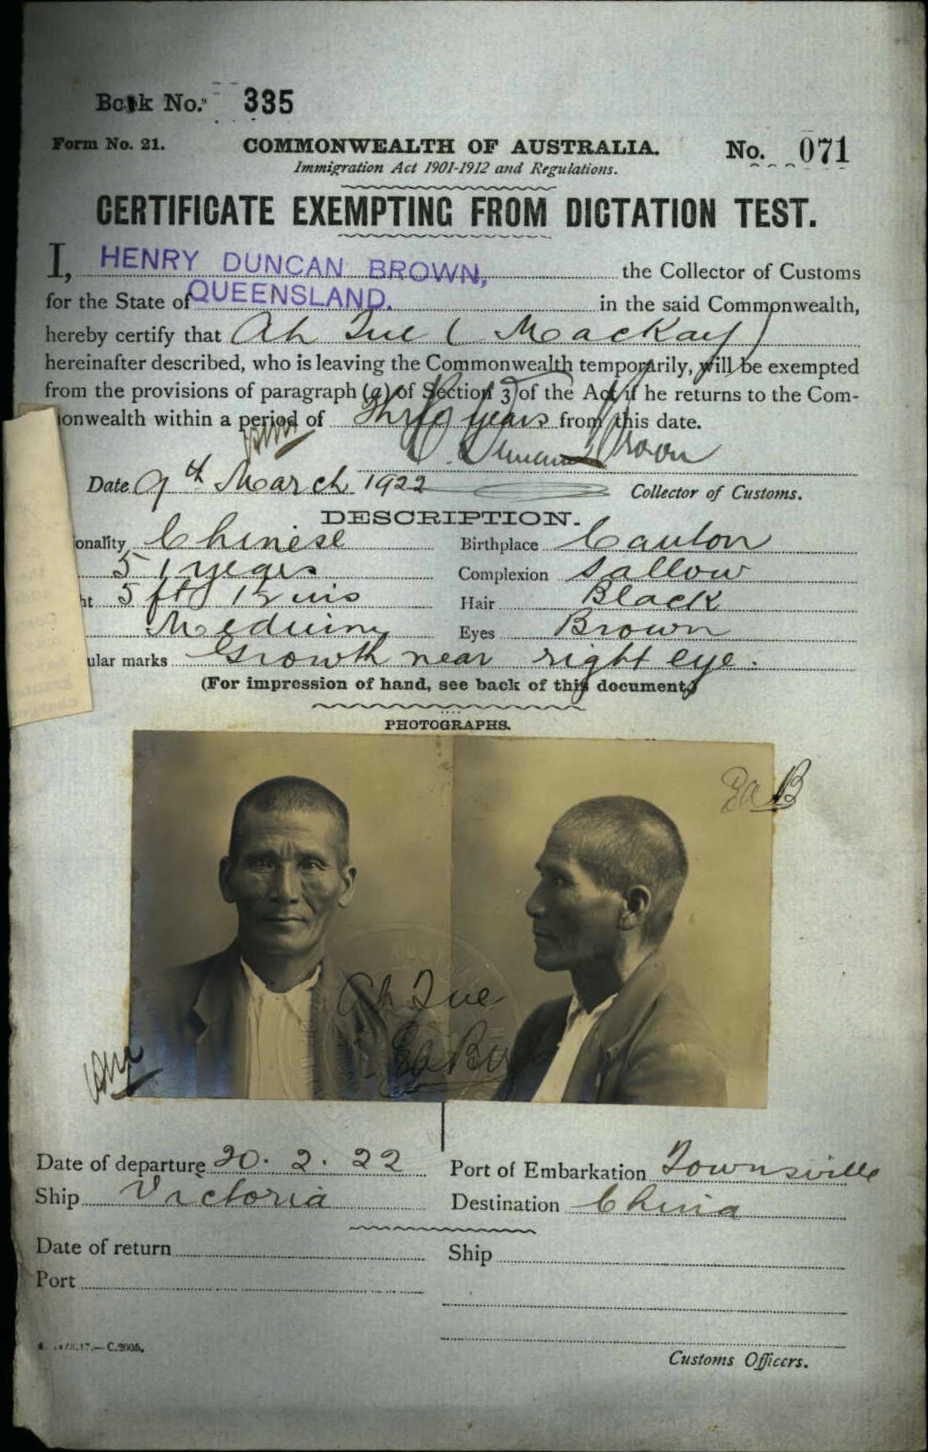 Book No. 335
Form No. 21. COMMONWEALTH OF AUSTRALIA. No. 071
Immigration Act 1901-1912 and Regulations.
CERTIFICATE EXEMPTING FROM DICTATION TEST.
I, HENRY DUNCAN BROWN, the Collector of Customs
for the State of QUEENSLAND. in the said Commonwealth,
hereby certify that Ah Sue (Mackay)
hereinafter described, who is leaving the Commonwealth temporarily, will be exempted
from the provisions of paragraph (a) of Section 3 of the Act if he returns to the Com-
onwealth within a period of Three years from this date.
H. Duncan Brown
Date 9th March 1922 Collector of Customs.
DESCRIPTION.
onality Chinese Birthplace Canton
51 years Complexion Sallow
ht 5 ft 1½ ins Hair Black
Medium Eyes Brown
ular marks Growth near right eye.
(For impression of hand, see back of this document)
PHOTOGRAPHS.
Ah Sue
Date of departure 20. 2. 22 Port of Embarkation Townsville
Ship Victoria Destination China
Date of return Ship
Port
C.2005.
Customs Officers.